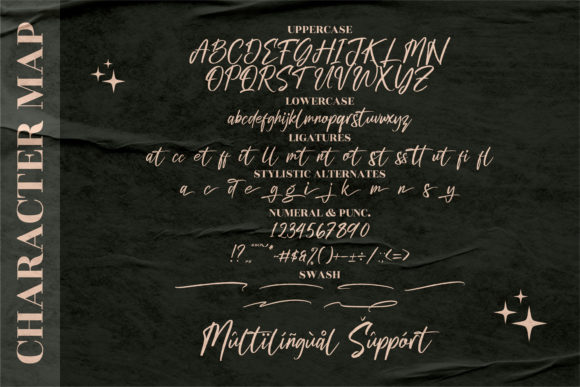 CHARACTER MAP
UPPERCASE
ABCDEFGHIJKLMN
OPQRSTUVWXYZ
LOWERCASE
abcdefghijklmnopqrstuvwxyz
LIGATURES
at cc et ff it ll mt nt ot st ss tt ut fi fl
STYLISTIC ALTERNATES
a c d e g g i j k m n s y
NUMERAL & PUNC.
1234567890
SWASH
Múltïlíñgùàl Šûppórt